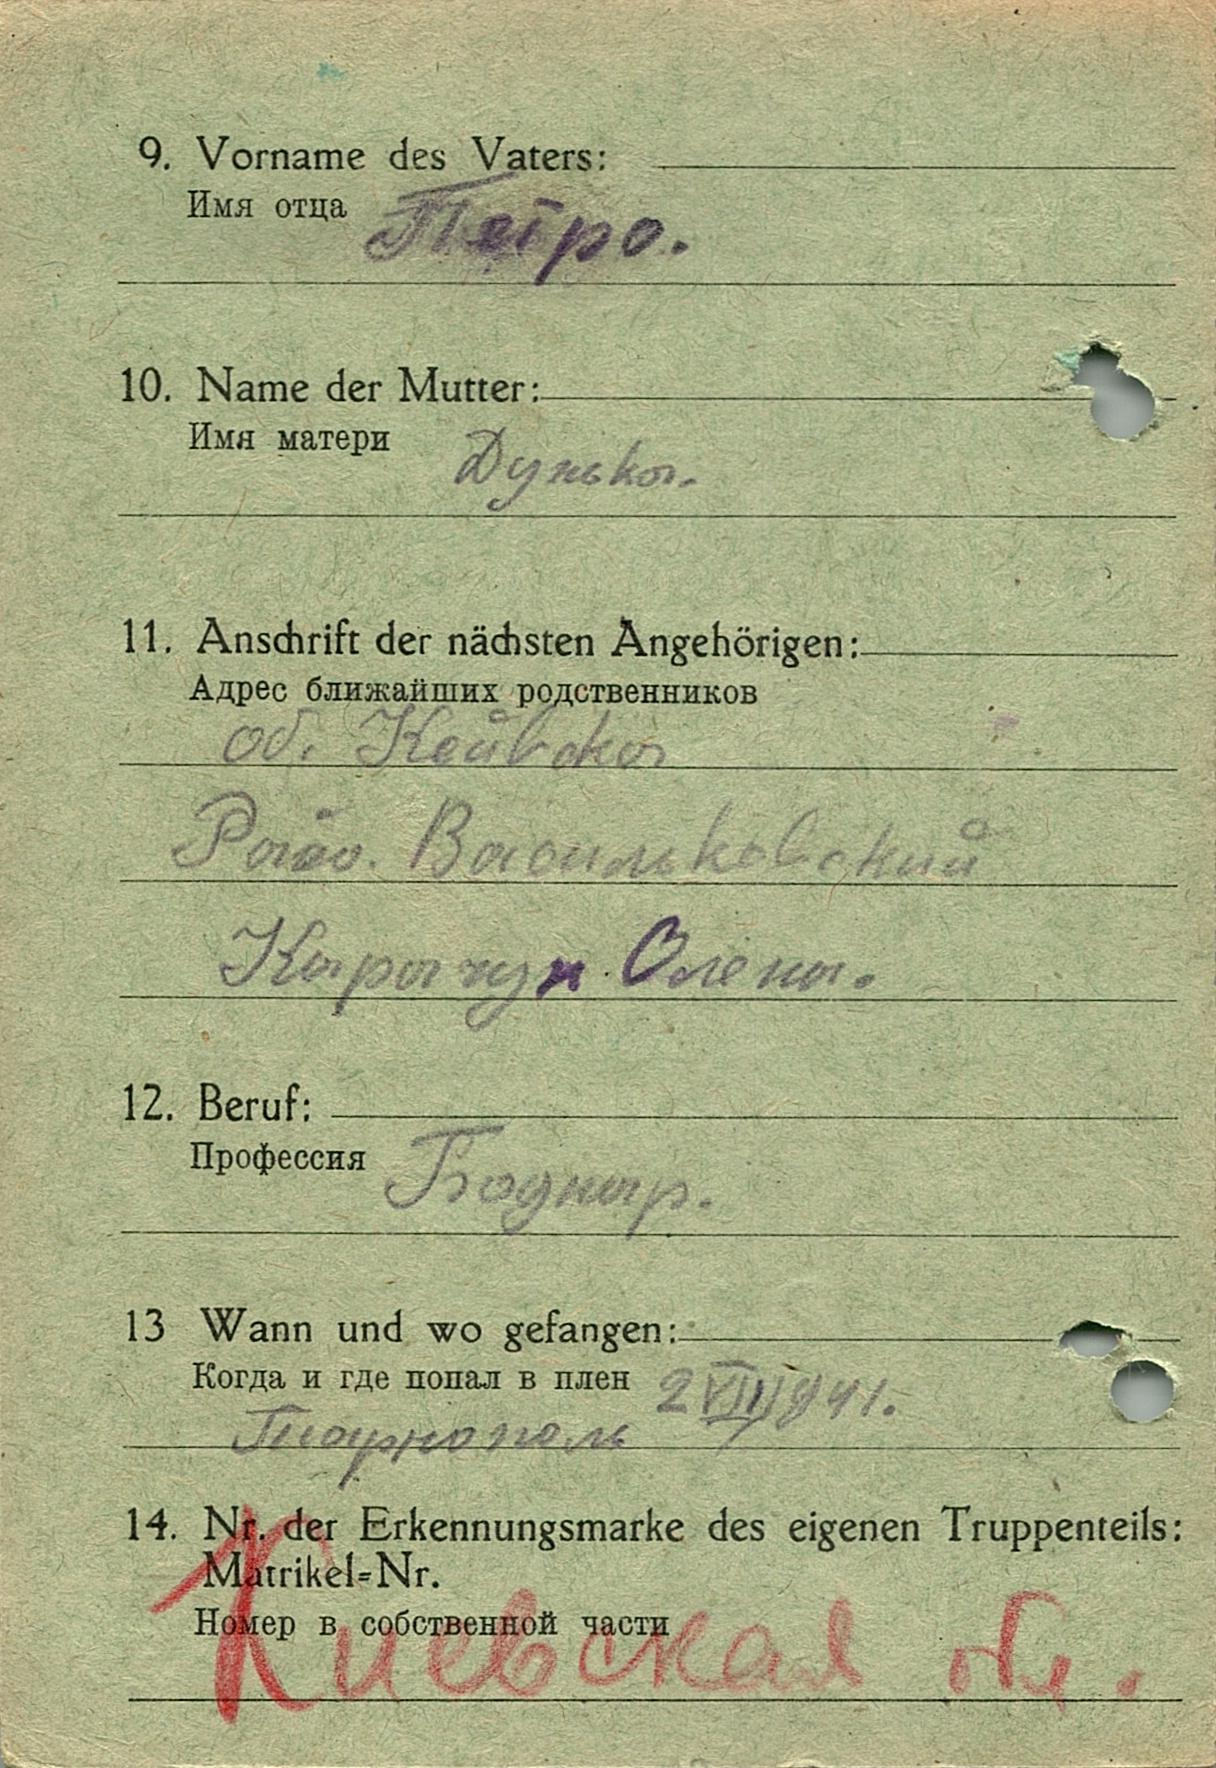 9. Vorname des Vaters:
Имя отца Петро.
10. Name der Mutter:
Имя матери
Дунька.
11. Anschrift der nächsten Angehörigen:
Адрес ближайших родственников
об. Кейвска
Райо. Васильковский
Карачун Олена.
12. Beruf:
Профессия Боднар.
13 Wann und wo gefangen:
Когда и где попал в плен 2 VIII 1941.
Тиарнополь
14. Nr. der Erkennungsmarke des eigenen Truppenteils:
Matrikel=Nr.
Номер в собственной части
Киевская обл.